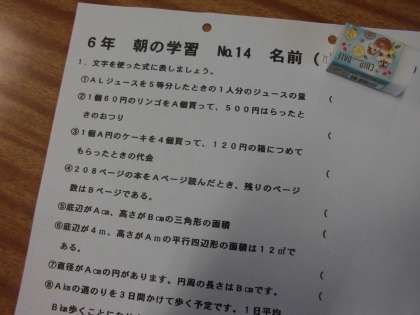 6年 朝の学習 №14 名前(
1．文字を使った式に表しましょう。
①ALジュースを5等分したときの1人分のジュースの量
②1個60円のリンゴをA個買って、500円はらったと
きのおつり
③1個A円のケーキを4個買って、120円の箱につめて
もらったときの代金
④208ページの本をAページ読んだとき、残りのページ
数はBページである。
⑤底辺がA㎝、高さがB㎝の三角形の面積
⑥底辺が4m、高さがAmの平行四辺形の面積は12㎡で
ある。
⑦直径がA㎝の円があります。円周の長さはB㎝です。
⑧A㎞の道のりを3日間かけて歩く予定です。1日平均
B㎞歩くことにな